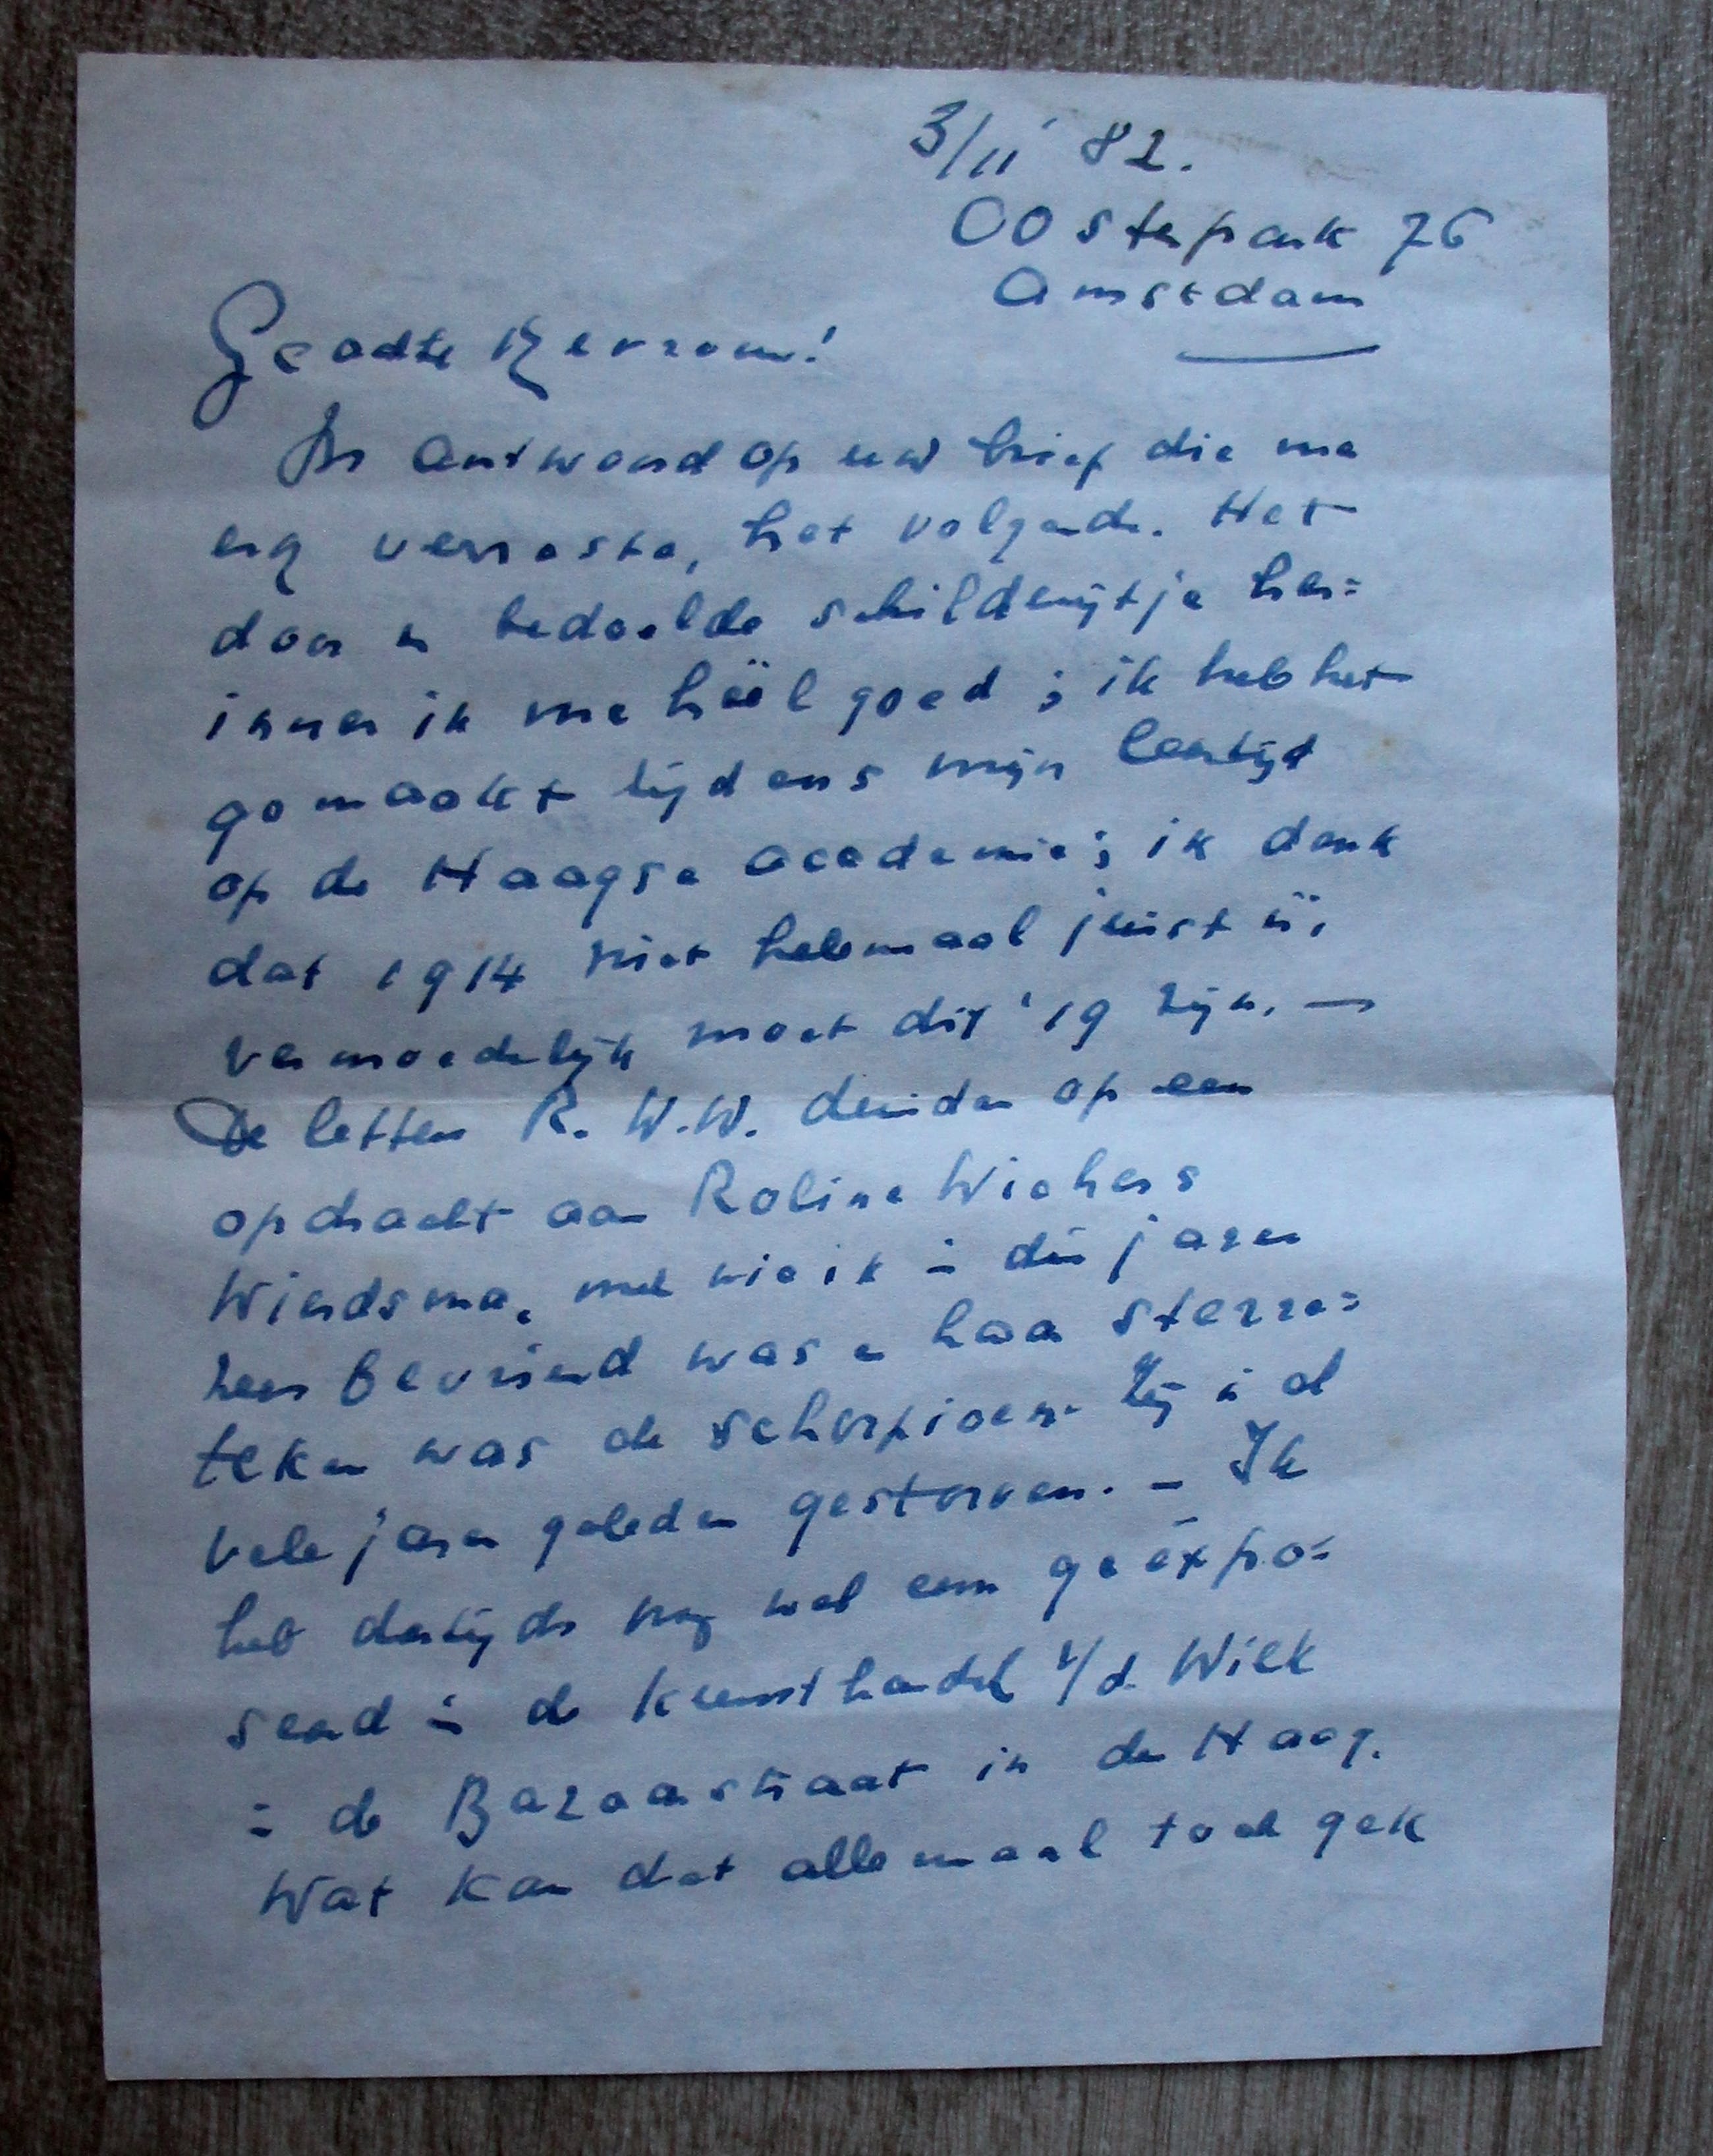 3/11 '82.
Oosterpark 76
Amsterdam
Geachte Mevrouw!
In antwoord op uw brief die me
erg verraste, het volgende. Het
door u bedoelde schilderijtje her=
inner ik me heël goed ; ik heb het
gemaakt tijdens mijn leertijd
op de Haagse academie ; ik denk
dat 1914 niet helemaal juist is,
vermoedelijk moet dit '19 zijn. —
De letters R. W.W. duiden op een
opdracht aan Roline Wichers
Wierdsma, met wie ik in die jaren
zeer bevriend was en haar sterre=
teken was de schorpioen. Zij is al
vele jaren geleden gestorven. — Ik
heb destijds nog wel eens geëxpo=
seerd in de kunsthandel v/d Wiek
in de Bazaarstraat in den Haag.
Wat kan dat allemaal toch gek